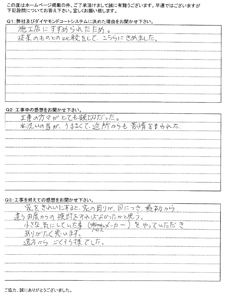 この度はホームページ掲載の件、ご了承頂けまして誠に有難うございます。早速ではございますが
下記設問についてお答え下さい。宜しくお願い致します。
Q1.弊社及びダイヤモンドコートシステムに決めた理由をお聞かせ下さい。
施工店にすすめられたため。
従来のものとの比較をして、こちらにきめました。
Q2.工事中の感想をお聞かせ下さい。
工事の方々がとても親切だった。
水洗いの音が、うるさくて、近所からも苦情をまねかれた
Q3.工事を終えての感想をお聞かせ下さい。
家をきれいにすると、家の周りが、目につき、最初から
違う角度からの検討をすればよかったかと思う。
小さな気にしていた事 をやっていただき
ありがたく思います。
遠方からごくろう様でした。
ご協力、誠にありがとうございました。